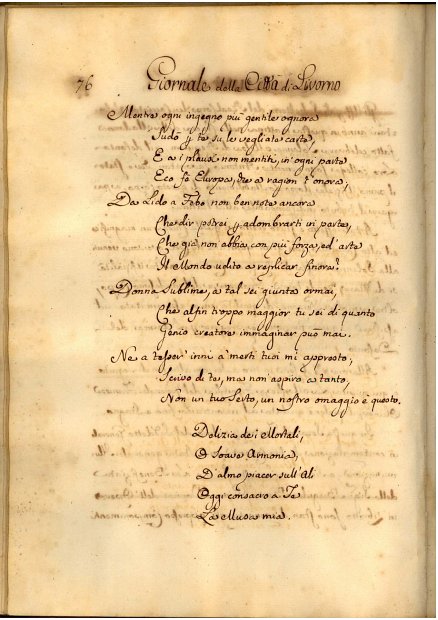 76 Giornale della Città di Livorno
Mentre ogni ingegno più gentile ognora
Sudò p te su le vegliate carte,
E a i plausi non mentiti, in ogni parte
Eco fè Europa, che a ragion t'onora,
Da Lido a Febo non ben note ancora
Che dir potrei p adombrarti in parte,
Che già non abbia con più forza, ed' arte
Il Mondo udito a replicar finora?
Donna Sublime, a tal sei giunta ormai,
Che alfin troppo maggior tu sei di quanto
Genio creatore immaginar può mai.
Ne a tesser inni a' merti tuoi mi appresto,
Scrivo di te, ma non aspiro a tanto,
Non un tuo Serto, un nostro omaggio è questo.
Delizia de i Mortali,
O Soave Armonia,
D'almo piacer sull'Ali
Oggi consacro a Te
La Musa mia.